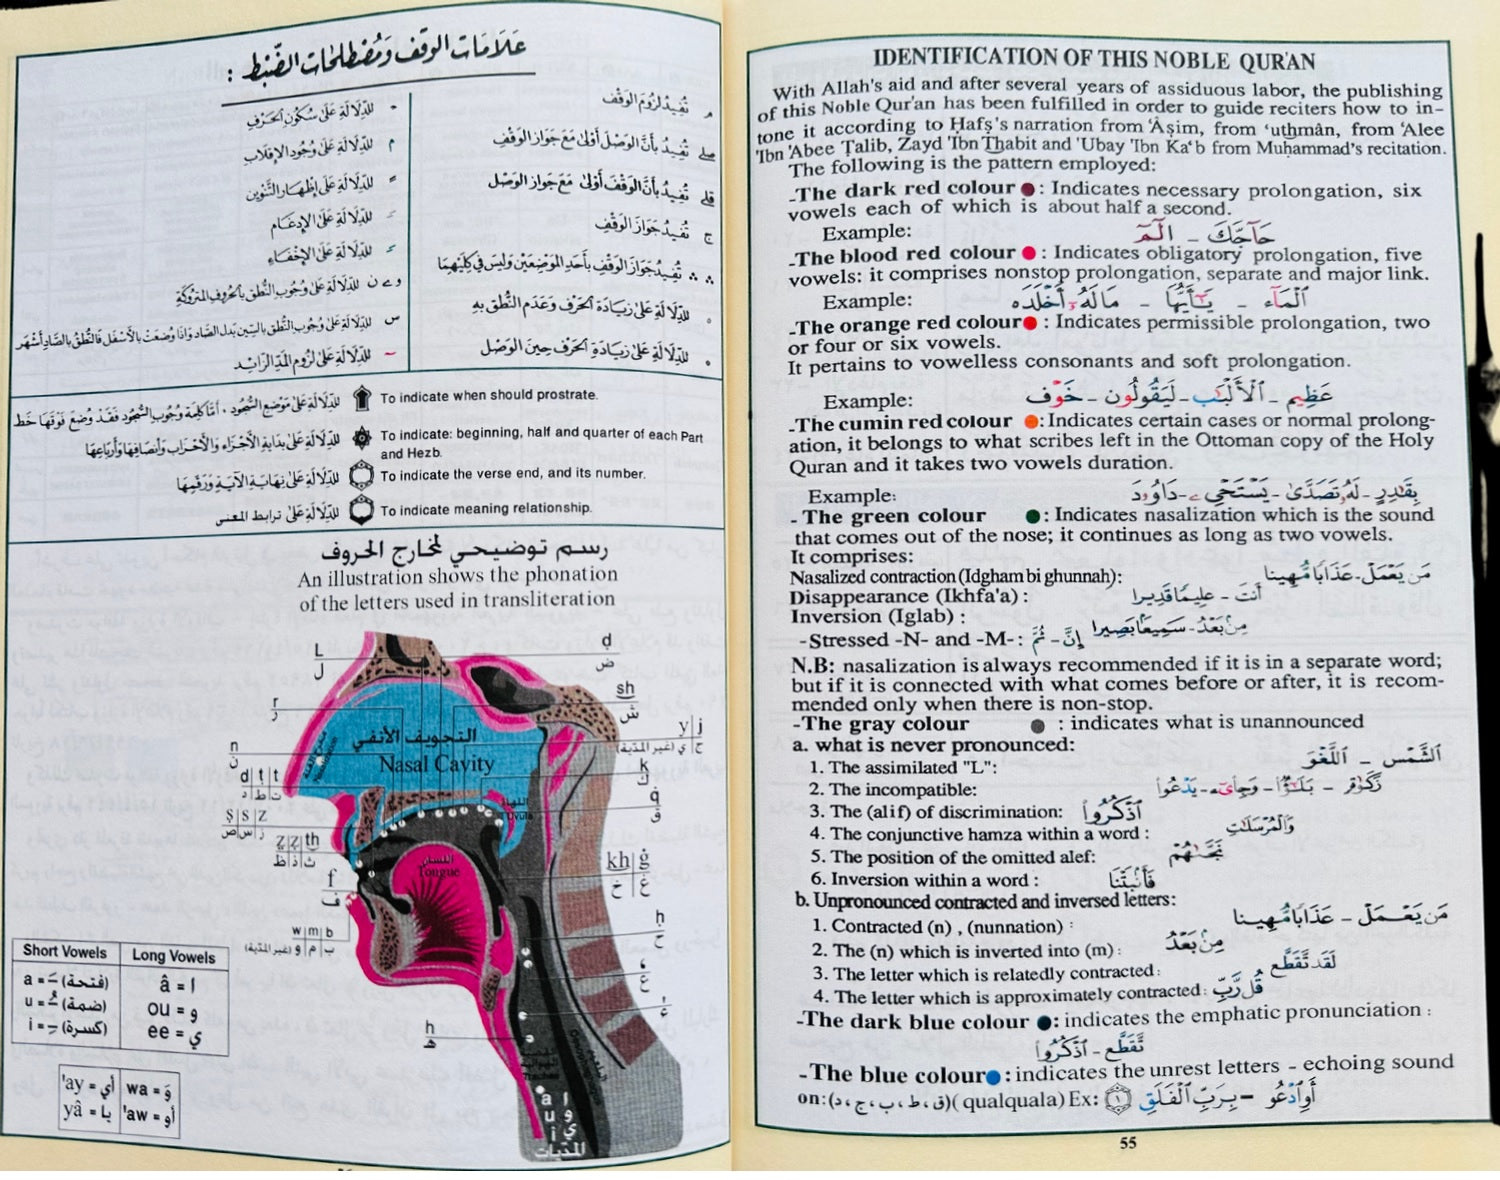 عَلَامَات الوَقف وَمُصْطَلَحَات الضَّبْط :
م تُفِيدُ لزُومَ الوَقْف
صلے تُفِيدُ بأنَّ الوَصْلَ أَوْلَىٰ مَعَ جَوَاز الوَقْفِ
قلے تُفِيدُ بأنَّ الوَقْفَ أَوْلَىٰ مَعَ جَوازِ الوَصْلِ
ج تُفِيدُ جَوَازَ الوَقْفِ
تُفِيدُ جَوَازَ الوَقْفِ بأَحَدِ المَوْضِعَيْن وَليْسَ في كِلَيْهِمَا
للدِّلَالَةِ عَلىٰ زِيَادَة الحَرْف وَعَدَم النُّطْق بهِ
للدِّلَالَةِ عَلىٰ زِيَادَةِ الحَرْفِ حِينَ الوَصْل
للدِّلَالَةِ عَلىٰ سُكُونِ الحَرْفِ
م للدِّلَالَةِ عَلىٰ وُجُودِ الإِقْلَاب
للدِّلَالَةِ عَلىٰ إِظْهَار التَّنْوِين
للدِّلَالَةِ عَلىٰ الإِدْغَام
للدِّلَالَةِ عَلىٰ الإِخْفَاء
و ے ن للدِّلَالَةِ عَلىٰ وُجُوبِ النُّطْق بالحُرُوفِ المَتْرُوكَةِ
س للدِّلَالَةِ عَلىٰ وُجُوبِ النُّطْق بالسِّين بَدل الصَّاد وَإذَا وُضِعَتْ بالأَسْفَل فَالنُّطْقُ بالصَّاد أَشْهَر
للدِّلَالَةِ عَلىٰ لزُوم المَدِّ الزَّائِد
للدِّلَالَةِ عَلىٰ مَوْضِع السُّجُود . أمَّا كَلِمَة وُجُوب السُّجُود فَقَدْ وُضِعَ فَوْقَهَا خَط
To indicate when should prostrate.
للدِّلَالَةِ عَلىٰ بدَايَةِ الأَجْزَاء وَالأَحْزَاب وَأَنصَافِهَا وَأَرْبَاعِهَا
To indicate: beginning, half and quarter of each Part
and Hezb.
للدِّلَالَةِ عَلىٰ نِهَايَةِ الآيَةِ وَرَقْمِهَا
To indicate the verse end, and its number.
للدِّلَالَةِ عَلىٰ ترابط المعنى
To indicate meaning relationship.
رسم توضيحي لمخارج الحروف
An illustration shows the phonation
of the letters used in transliteration
L
ل
ḍ
ض
r
ر
sh
ش
y j
ي (غير المدّية) ج
n
ن
التجويف الأنفي
Nasal Cavity
k
ك
d ṭ t
د ط ت
اللهاة
Uvula
q
ق
ṣ s z
ص س ز
ẓ ẕ th
ظ ذ ث
اللسان
Tongue
kh ġ
خ غ
f
ف
w m b
و (غير المدّية) م ب
ḥ
ح
ع
ء
h
هـ
Short Vowels Long Vowels
a = (فتحة) â = ا
u = (ضمة) ou = و
i = (كسرة) ee = ي
'ay = أي wa = وَ
yâ = يا 'aw = أو
a ا
u و
i ي
المدّيات
IDENTIFICATION OF THIS NOBLE QUR'AN
With Allah's aid and after several years of assiduous labor, the publishing
of this Noble Qur'an has been fulfilled in order to guide reciters how to in-
tone it according to Ḥafṣ's narration from 'Âṣim, from ‘uṯhmân, from ‘Alee
'Ibn 'Abee Ṭalib, Zayd 'Ibn Ṯhabit and 'Ubay 'Ibn Ka‘b from Muḥammad's recitation.
The following is the pattern employed:
-The dark red colour : Indicates necessary prolongation, six
vowels each of which is about half a second.
Example: حَآجَّكَ - الٓمٓ
-The blood red colour : Indicates obligatory prolongation, five
vowels: it comprises nonstop prolongation, separate and major link.
Example: الْمَآء - يَـٰٓأَيُّهَا - مَالَهُۥٓ أَخْلَدَه
-The orange red colour : Indicates permissible prolongation, two
or four or six vowels.
It pertains to vowelless consonants and soft prolongation.
Example: عَظِيم - الْأَلْبَـٰب - لَيَقُولُون - خَوْف
-The cumin red colour : Indicates certain cases or normal prolong-
ation, it belongs to what scribes left in the Ottoman copy of the Holy
Quran and it takes two vowels duration.
Example: بِقَـٰدِرٍ - لَهُۥ تَصَدَّىٰ - يَسْتَحْىِۦ - دَاوُۥدَ
- The green colour : Indicates nasalization which is the sound
that comes out of the nose; it continues as long as two vowels.
It comprises:
Nasalized contraction (Idgham bi ghunnah): مَن يَعْمَلْ - عَذَابًا مُّهِينا
Disappearance (Ikhfa'a) : أَنتَ - عَلِيمًا قَدِيرا
Inversion (Iglab) : مِنۢ بَعْدُ - سَمِيعًۢا بَصِيرا
-Stressed -N- and -M- : إِنَّ - ثُمَّ
N.B: nasalization is always recommended if it is in a separate word;
but if it is connected with what comes before or after, it is recom-
mended only when there is non-stop.
-The gray colour : indicates what is unannounced
a. what is never pronounced:
1. The assimilated "L": الشَّمْس - اللَّغْوَ
2. The incompatible: زَكَوٰة - بَلَـٰٓؤٌا - وَجِاْىٓءَ - يَدْعُوا
3. The (alif) of discrimination: اذْكُرُوا
4. The conjunctive hamza within a word : وَالْمُرْسَلَـٰتِ
5. The position of the omitted alef: نَجَّىٰهُمْ
6. Inversion within a word : فَأَنۢبَتْنَا
b. Unpronounced contracted and inversed letters:
1. Contracted (n) , (nunnation) : مَن يَعْمَلْ - عَذَابًا مُّهِينا
2. The (n) which is inverted into (m) : مِنۢ بَعْدُ
3. The letter which is relatedly contracted: لَقَد تَّقَطَّع
4. The letter which is approximately contracted : قُل رَّبِّ
-The dark blue colour : indicates the emphatic pronunciation :
تَّقَطَّع - اذْكُرُوا
-The blue colour : indicates the unrest letters - echoing sound
on: (ق، ط، ب، ج، د)( qualquala) Ex: أَوِ ادْعُو - بِرَبِّ الْفَلَقِ ١
55